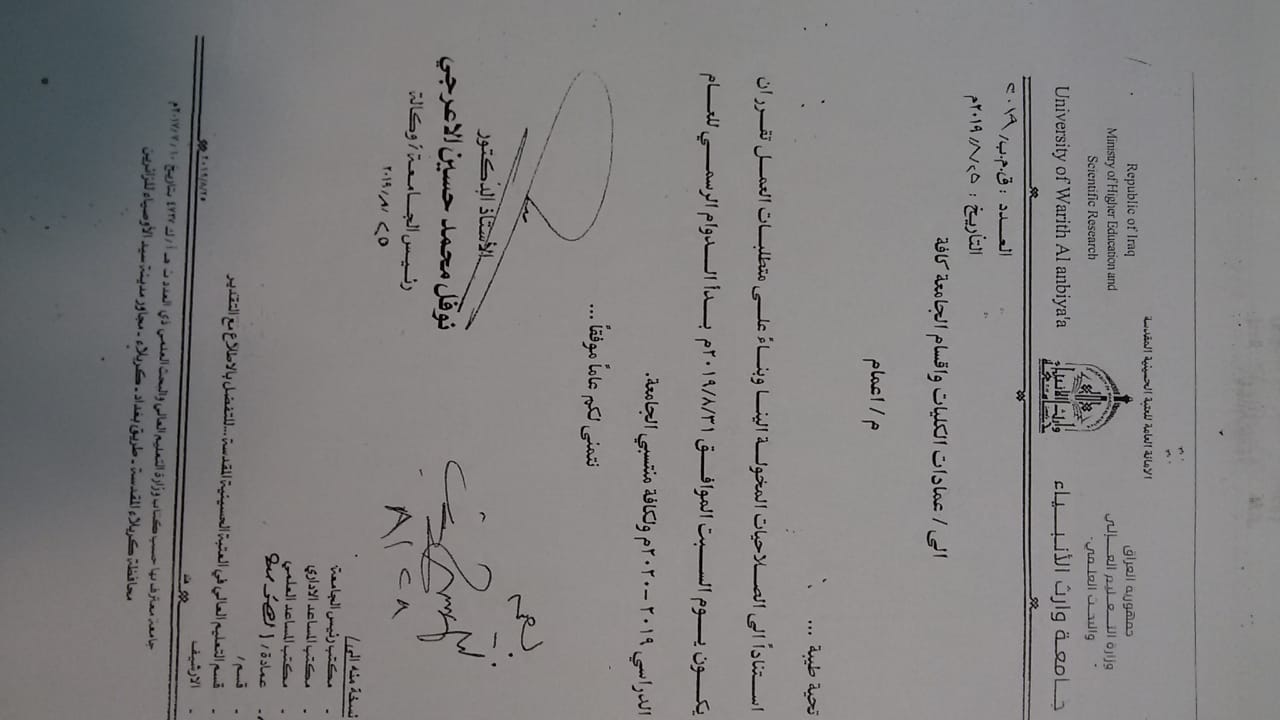 الامانة العامة للعتبة الحسينية المقدسة
Republic of Iraq
Ministry of Higher Education and
Scientific Research
University of Warith Al anbiya'a
جمهورية العراق
وزارة التعليم العالي
والبحث العلمي
جامعة وارث الأنبياء
العدد : ق.م.ب/ ٢٠١٩
التأريخ : ٢٠١٩/٨/٢٥م
الى / عمادات الكليات واقسام الجامعة كافة
م / اعمام
تحية طيبة ...
استناداً الى الصلاحيات المخولة الينا وبناءً على متطلبات العمل تقرر ان
يكون يوم السبت الموافق ٢٠١٩/٨/٣١م بدأ الدوام الرسمي للعام
الدراسي ٢٠١٩ – ٢٠٢٠م ولكافة منتسبي الجامعة.
نتمنى لكم عاماً موفقاً ...
الأستاذ الدكتور
نوفل محمد حسين الاعرجي
رئيس الجامعة / وكالة
٢٠١٩/٨/٢٥
٨/٢٨
نسخة منه الى //
- مكتب رئيس الجامعة
- مكتب المساعد الاداري
- مكتب المساعد العلمي
- عمادة /
- قسم /
- قسم التعليم العالي في العتبة الحسينية المقدسة ... للتفضل بالاطلاع مع التقدير
- الارشيف
٢٠١٩/٨/٢٥
جامعة معترف بها حسب كتاب وزارة التعليم العالي والبحث العلمي ذي العدد ت هـ أ ر ك ٤٧٣٧ بتاريخ ٢٠١٧/٧/١٠م
محافظة كربلاء المقدسة - طريق بغداد - كربلاء - مجاور مدينة سيد الأوصياء للزائرين